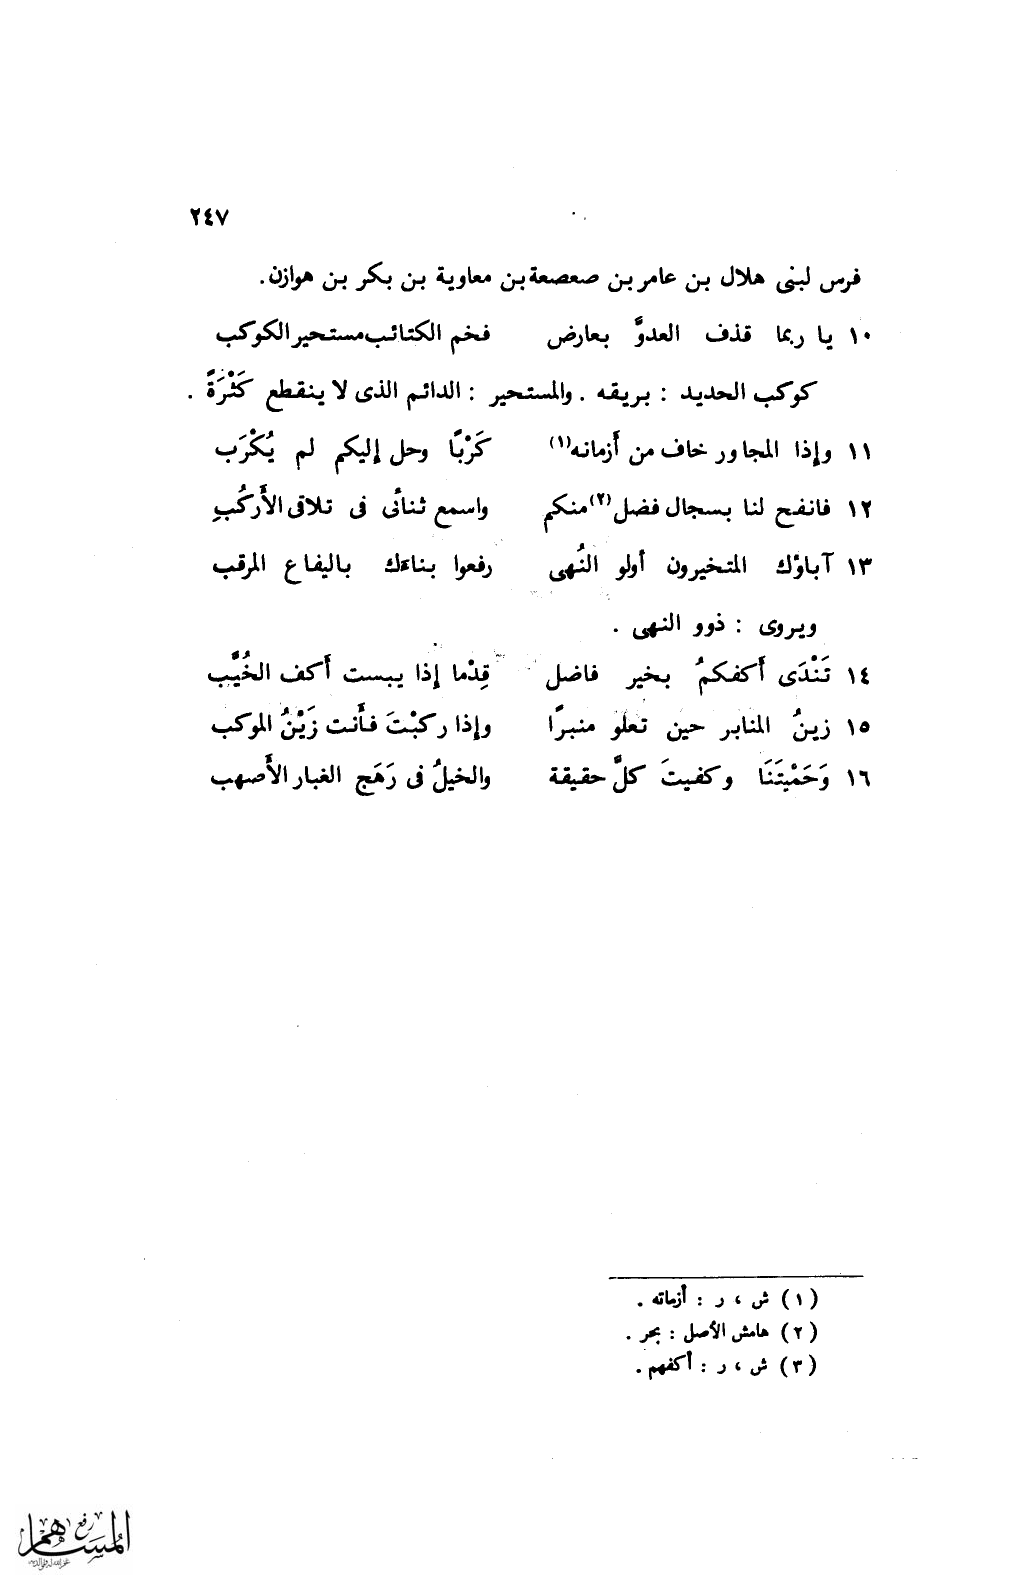 ٢٤٧
فرس لبنى هلال بن عامر بن صعصعة بن معاوية بن بكر بن هوازن.
١٠ يا ربما قذف العدوَّ بعارض فخم الكتائب مستحير الكوكب
كوكب الحديد : بريقه . والمستحير : الدائم الذى لا ينقطع كَثْرَةً .
١١ وإذا المجاور خاف من أَزمانه(١) كَرْبًا وحل إليكم لم يُكْرَب
١٢ فانفح لنا بسجال فضل(٢) منكم واسمع ثنائى فى تلاقى الأَركُبِ
١٣ آباؤك المتخيرون أولو النُهى رفعوا بناءك باليفاع المرقب
ويروى : ذوو النهى .
١٤ تَنْدَى أَكفكمُ بخير فاضل قِدْما إذا يبست أَكف الخُيَّب
١٥ زينُ المنابر حين تعلو منبرًا وإذا ركبْتَ فأَنت زَيْنُ الموكب
١٦ وَحَمْيتَنَا وكفيتَ كلَّ حقيقة والخيلُ فى رَهَج الغبار الأَصهب
(١) ش ، ر : أزماته .
(٢) هامش الأصل : بحر .
(٣) ش ، ر : أكفهم .
رفع
المساهم